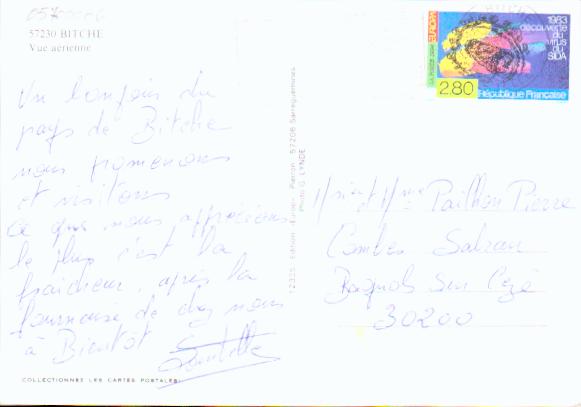 57230 BITCHE
Vue aérienne
Un bonjour du
pays de Bitche
nous promenons
et visitons
Ce que nous apprécions
le plus c'est la
fraicheur, après la
fournaise de chez nous
à Bientôt
COLLECTIONNEZ LES CARTES POSTALES
12335 - Edition - Europ - Pierron - 57206 Sarreguemines
Photo G. LYNDE
1983
découverte
du
virus
du
SIDA
EUROPA
LA POSTE 1994
2.80
République Française
Mr et Mme Pailhon Pierre
Combes Salran
Bagnols Sur Cèze
30200